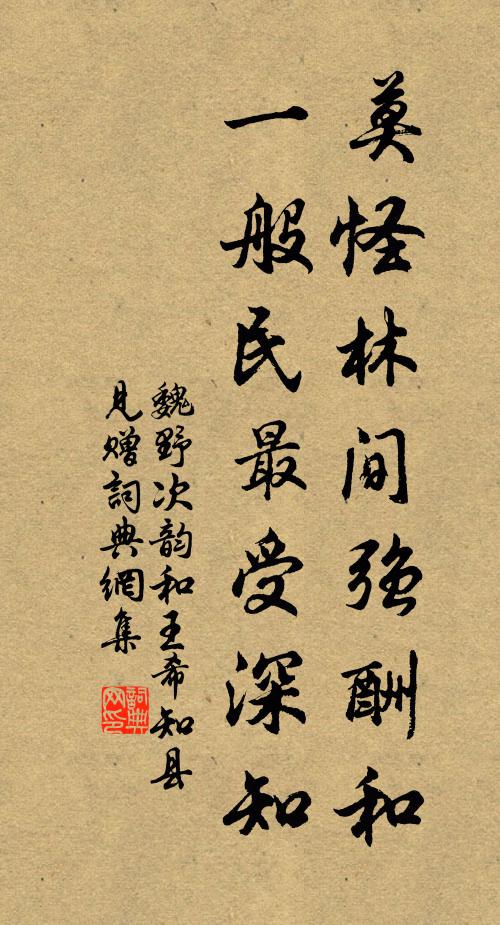 莫怪林间强酬和
一般民最受深知
魏野次韵和王希知县
见赠词典網集
詞典网印